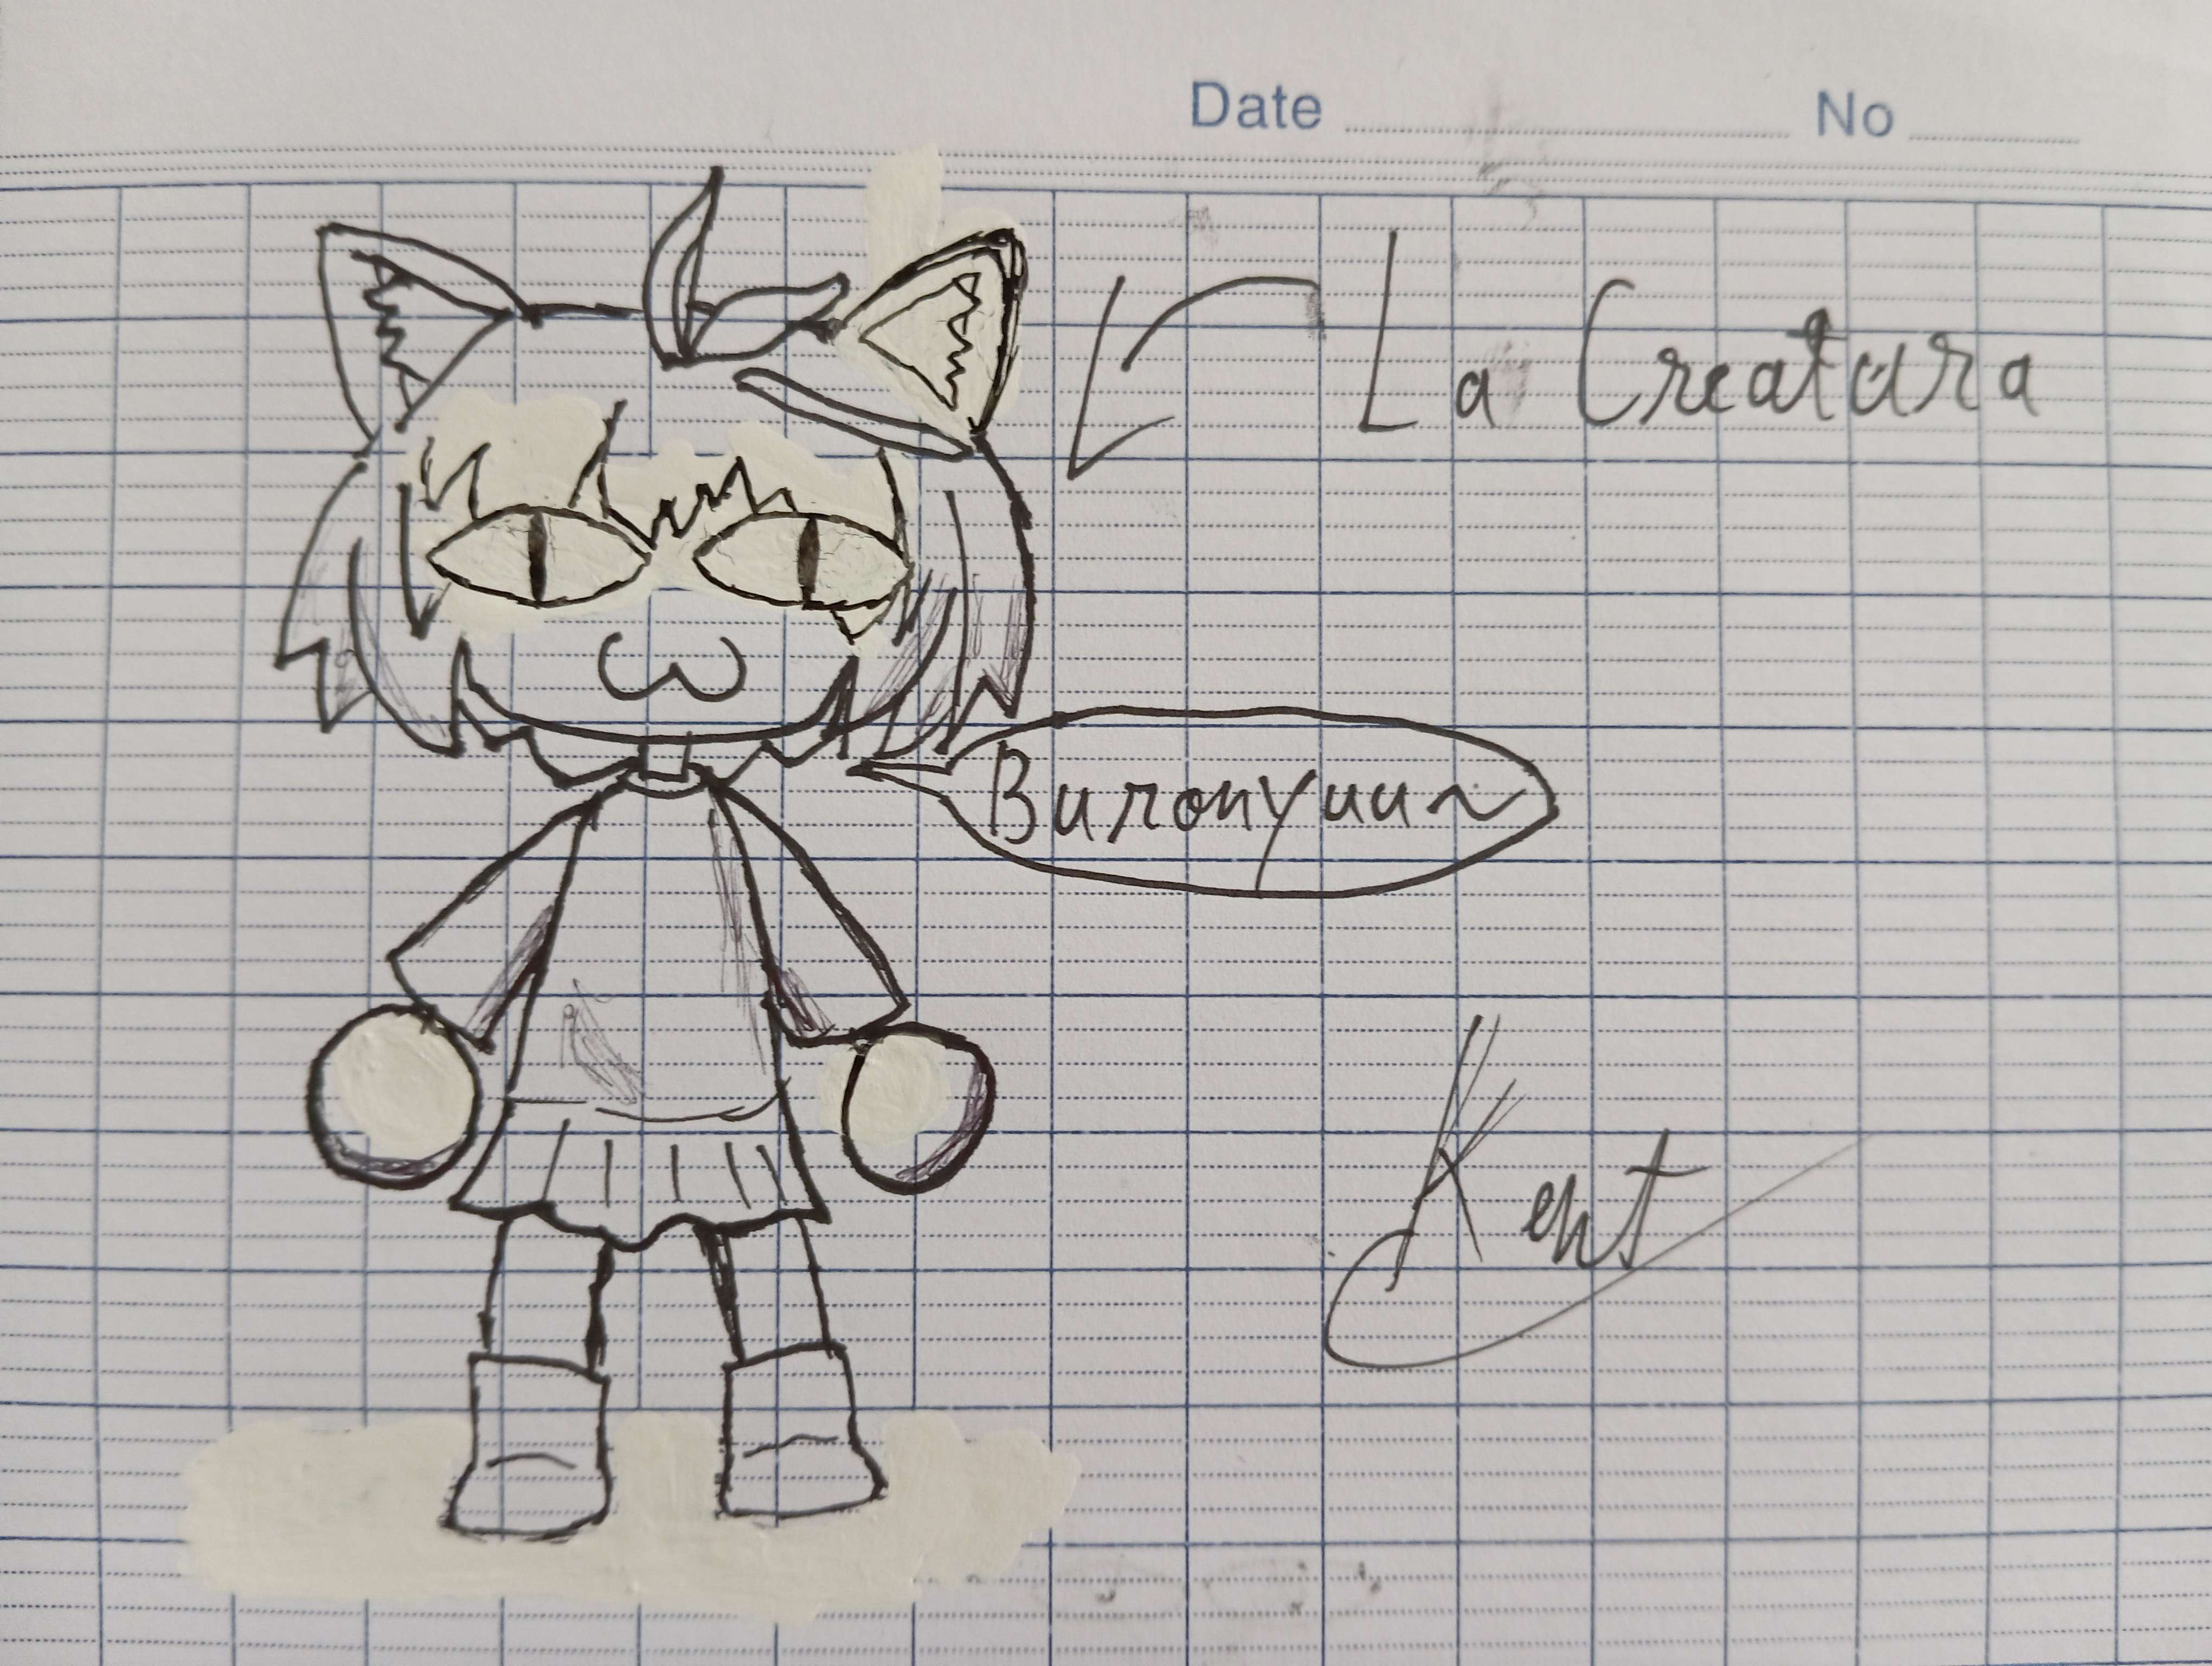 Date No
La Creatura
Buronyuu~
Kent